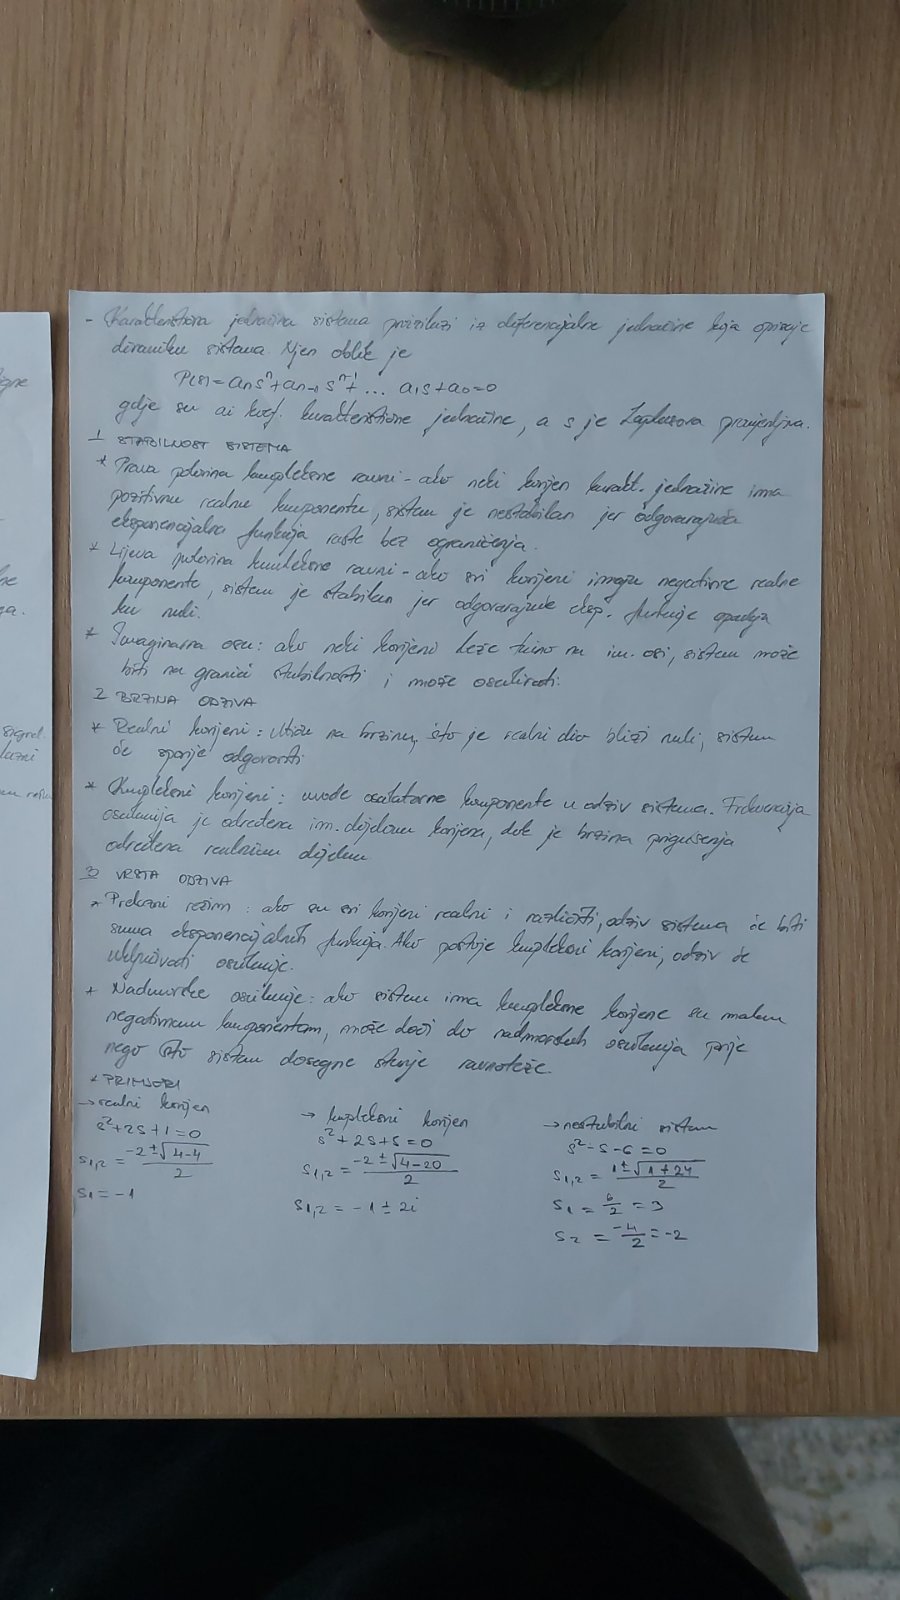 - Karakteristična jednačina sistema proizilazi iz diferencijalne jednačine koja opisuje
dinamiku sistema. Njen oblik je
P(s) = aₙsⁿ + aₙ₋₁sⁿ⁻¹ + ... a₁s + a₀ = 0
gdje su ai koef. karakteristične jednačine, a s je Laplasova promjenljiva.
1 STABILNOST SISTEMA
* Prava polovina kompleksne ravni - ako neki korjen karakt. jednačine ima
pozitivnu realnu komponentu, sistem je nestabilan jer odgovarajuća
eksponencijalna funkcija raste bez ograničenja.
* Lijeva polovina kompleksne ravni - ako svi korjeni imaju negativne realne
komponente, sistem je stabilan jer odgovarajuće eksp. funkcije opadaju
ku nuli.
* Imaginarna osa: ako neki korjeni leže tačno na im. osi, sistem može
biti na granici stabilnosti i može oscilirati.
2 BRZINA ODZIVA
* Realni korjeni: Utiču na brzinu, što je realni dio bliži nuli, sistem
će sporije odgovoriti
* Kompleksni korjeni: uvode oscilatorne komponente u odziv sistema. Frekvencija
oscilacija je određena im. dijelom korjena, dok je brzina prigušenja
određena realnim dijelom
3 VRSTA ODZIVA
* Prelazni režim: ako su svi korjeni realni i različiti, odziv sistema će biti
suma eksponencijalnih funkcija. Ako postoje kompleksni korjeni, odziv će
uključivati oscilacije.
* oscilacije: ako sistem ima kompleksne korjene sa malom
negativnom komponentom, može doći do oscilacija prije
nego što sistem dosegne stanje ravnoteže.
* PRIMJERI
→ realni korjen
s² + 2s + 1 = 0
s₁,₂ = -2 ± √4-4 / 2
s₁ = -1
→ kompleksni korjen
s² + 2s + 5 = 0
s₁,₂ = -2 ± √4-20 / 2
s₁,₂ = -1 ± 2i
→ nestabilni sistem
s² - s - 6 = 0
s₁,₂ = 1 ± √1+24 / 2
s₁ = 6/2 = 3
s₂ = -4/2 = -2